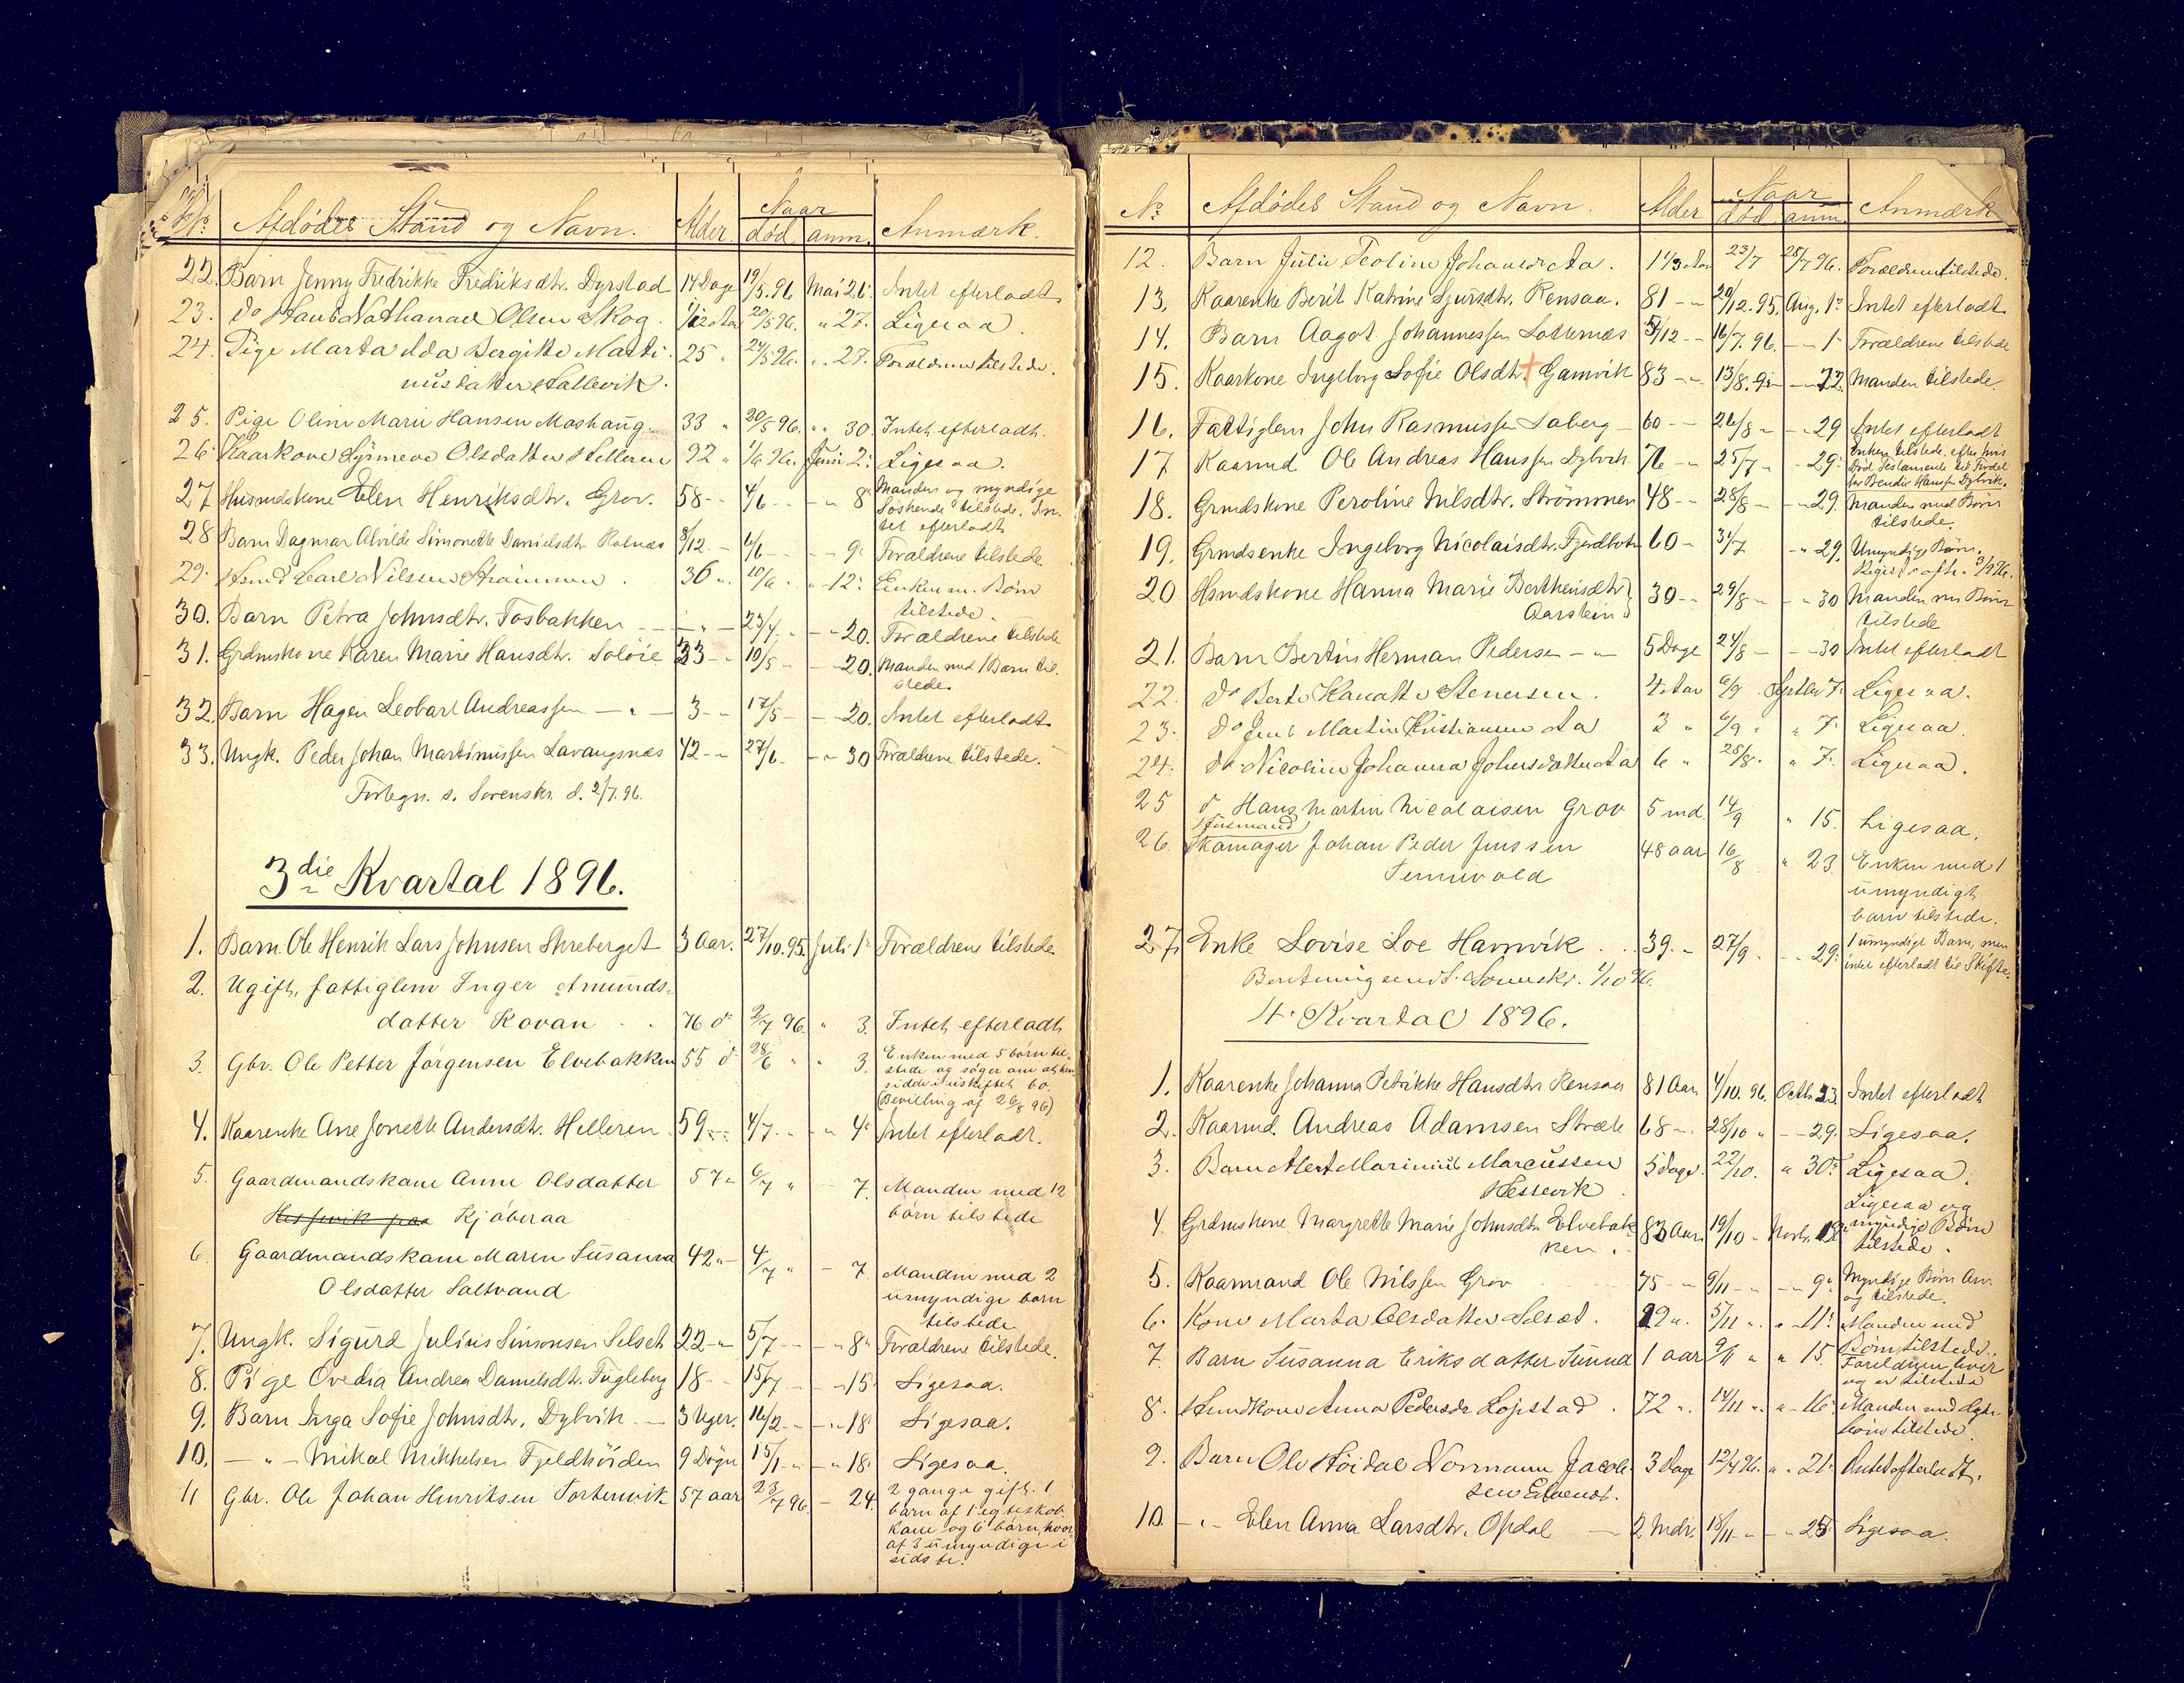 No. Afdødes Stand og Navn. Alder. Naar død anm. Anmærk.
22. Barn Jenny Fredrikke Fredriksdtr. Dyrstad 14 Dage 19/5.96 Mai 26. Intet efterladt
23. do Hans Nathanael Olsen Skog. 1/12 Aar 20/5 96. " 27. Ligesaa.
24. Pige Marta Ilda Bergitte Marti- 25 " 24/5 96. " 27. Forældrene tilstede.
nusdatter Hallevik.
25. Pige Oline Marie Hansen Moshaug. 33 " 20/5 96. " " 30. Intet efterladt.
26. Kaarkone Synneve Olsdatter Helleren 92 " 1/6 96. Juni 2. Ligesaa.
27 Husmdskone Elen Henriksdtr. Grov. 58 - - 4/6 - - - " 8 Manden og myndige
Søskende tilstede. In-
tet efterladt
28 Barn Dagmar Alvilde Simonette Danielsdtr. Rolnæs 8/12 - 6/6 - - - 9. Forældrene tilstede
29. Husmd Carl Nilssen Strømmen . 36 " 10/6 " " 12. Enken m. Børn
tilstede.
30. Barn Petra Johnsdtr. Fosbakken - - " - 23/4 - - 20. Forældrene tilstede
31. Grdmskone Karen Marie Hansdtr. Soløie 33 - " 10/5 - - - 20. Manden med 1 Barn til-
stede.
32. Barn Hagen Leobart Andreassen - " - 3 - - 17/5 - - - 20. Intet efterladt
33. Ungk. Peder Johan Martinussen Lavangsnæs 42 - " 27/6 - - " 30 Forældrene tilstede.
Fortegn. s. Sorenskr. d. 2/7.96.
3die Kvartal 1896.
1. Barn Ole Henrik Lars Johnsen Skreberget 3 Aar. 27/10.95. Juli 1. Forældrene tilstede
2. Ugift, fattiglem Inger Amunds-
datter Rovan . . 76 do 2/7 96 " 3. Intet efterladt
3. Gbr. Ole Petter Jørgensen Elvebakken 55 do 28/6 " " 3. Enken med 5 børn til-
stede og søger om at hen-
sidde i uskiftet bo.
(Bevilling af 26/8 96)
4. Kaarenke Ane Jonette Andersdtr. Helleren 59 - - 4/7 - - - " 4. Intet efterladt.
5. Gaardmandskane Anne Olsdatter 57 " 6/7 " - 7. Manden med 12
Hessevik paa Kjøberaa børn tilstede
6 Gaardmandskane Maren Susanna 42 " - 4/7 " - 7. Manden med 2
Olsdatter Saltvand umyndige børn
tilstede
7. Ungk. Sigurd Julius Simonsen Selset 22 - " 5/7 - - - " 8. Forældrene tilstede.
8. Pige Ovedia Andrea Danielsdtr. Fugleberg 18 - - 15/7 - - - " 15. Ligesaa.
9. Barn Inga Sofie Johnsdtr. Dybvik. - 3 Uger. 16/2 - - - " 18 Ligesaa.
10. - " - Mikal Mikkelsen Fjeldhøiden 9 Døgn 15/1 - " - " 18. Ligesaa.
11 Gbr. Ole Johan Henriksen Tortenvik 57 aar 23/7 96. - 24. 2 gange gift. 1
barn af 1 egteskab.
kane og 6 børn, hvor-
af 3 umyndige i
sidste.
No. Afdødes Stand og Navn. Alder Naar død anm. Anmærk
12. Barn Julie Teoline Johansdr Aa. 1 1/3 Aar 23/7 25/7 96. Forældrene tilstede.
13. Kaarenke Berit Katrine Sjursdtr. Rensaa. 81 - - 20/12.95. Aug. 1. Intet efterladt
14. Barn Aagot Johannessen Sollernæs 5/12 - - 16/7.96. - - 1. Forældrene tilstede
15. Kaarkone Ingeborg Sofie Olsdtr. Gamvik 83 - " 13/8.96 - - 22. Manden tilstede.
16. Fattiglem John Rasmussen Saberg - 60 - - 26/8 " - - 29 Intet efterladt
17 Kaarmd Ole Andreas Hanssen Dybvik 76 - " 25/7 " - 29. Enken tilstede, efter hvis
Død Testamente til Fordel
for Bendix Hanssen Dybvik.
18. Grmdskone Peroline Nilsdtr. Strømmen 48 - - 28/8 - - - 29. Manden med Børn
tilstede.
19. Grmdsenke Ingeborg Nicolaisdtr. Fjordbotn 60 - 31/7 - " 29. Umyndige Børn.
Regist. afh. 3/9 96.
20. Hsmdskone Hanna Marie Berthensdtr. 30 - - 29/8 " - - 30 Manden m Børn
Aarstein tilstede
21. Barn Bertin Herman Pedersen - " 5 Dage 24/8 - - - 30 Intet efterladt
22. do Berte Kanutte Stenersen. 4 Aar 6/9 . Septbr 7. Ligesaa.
23. do Jens Martin Kristiansen Aa 3 " 6/9 " " 7. Ligesaa.
24. do Nicoline Johanna Johnsdatter Aa 6 " 28/8. " 7. Ligesaa.
25 do Hans Martin Nicolaisen Grov 5 md. 14/9 " 15. Ligesaa.
(Husmand)
26. Skomager Johan Peder Jenssen 48 aar 16/8 " 23. Enken med 1
Tennevold umyndigt
barn tilstede.
27. Enke Lovise Loe Havnvik . . 39. - 27/9 . - - 29. 1 umyndigt Barn, men
intet efterladt til Skifte.
Beretning sendt Sorenskr. 1/10 96.
4. Kvartal 1896.
1. Kaarenke Johanna Petrikke Hansdtr Rensaa 81 Aar 4/10. 96. Octb. 23. Intet efterladt
2. Kaarmd. Andreas Adamsen Stræte 68 - " 28/10 " - - 29. Ligesaa.
3. Barn Albert Marinius Marcussen 5 dage. 22/10. " 30. Ligesaa.
Hessevik.
4. Grdmskone Margrette Marie Johnsdtr. Elvebak- 83 Aar 19/10 - Novb. Ligesaa og
ken. myndige Børn
tilstede.
5. Kaarmand Ole Nilssen Grov 75 - " 9/11 - " - " 9. Myndige Børn
og tilstede.
6. Kone Marta Olsdatter Selset. 22 ". 5/11 ". " - 11. Manden med
Børn tilstede.
7. Barn Susanna Eriksdatter Sunnd 1 aar 9/11 " " 15. Foreldrene lever
og er tilstede
8. Husmdkone Anna Pedersdr Lopstad . 72 ". 14/11 ". " - 16. Manden med
børn tilstede.
9. Barn Ole Høidal Normann Jacob- 3 Dage 12/4 96. " " 21. Intet efterladt.
sen
10. - " - Elen Anna Larsdtr. Opdal - 2 Mdr. 18/11 - " - " 25 Ligesaa.